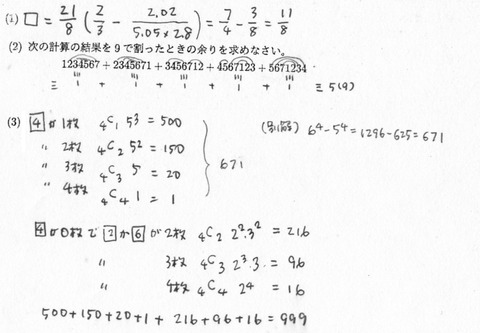 (1) □ = 21/8 ( 2/3 - 2.02/(5.05×2.8) ) = 7/4 - 3/8 = 11/8
(2) 次の計算の結果を9で割ったときの余りを求めなさい。
1234567 + 2345671 + 3456712 + 4567123 + 5671234
≡ 1 + 1 + 1 + 1 + 1 ≡ 5 (9)
(3) 4が1枚 ₄C₁ 5³ = 500
〃 2枚 ₄C₂ 5² = 150
〃 3枚 ₄C₃ 5 = 20
〃 4枚 ₄C₄ 1 = 1
671
(別解) 6⁴-5⁴=1296-625=671
4が0枚で 2か6が2枚 ₄C₂ 2²·3² = 216
〃 3枚 ₄C₃ 2³·3 = 96
〃 4枚 ₄C₄ 2⁴ = 16
500+150+20+1 + 216+96+16 = 999